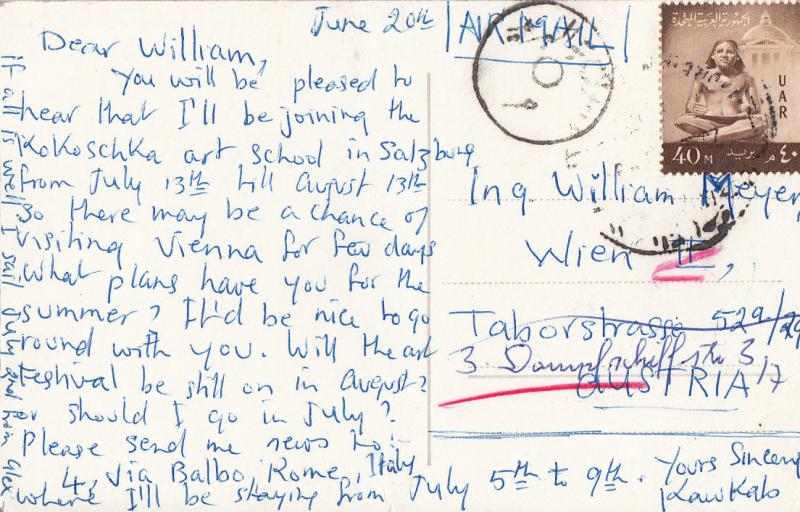 June 20th
AIR MAIL
Dear William,
You will be pleased to
hear that I'll be joining the
Kokoschka art school in Salzburg
from July 13th till August 13th
So there may be a chance of
visiting Vienna for few days
What plans have you for the
summer? It'd be nice to go
round with you. Will the art
festival be still on in August?
or should I go in July?
Please send me news to:-
4, Via Balbo, Rome, Italy
where I'll be staying from July 5th to 9th.
Yours Sincerely
Kawkab
if all is well, I sail July 2nd from Alex
الجمهورية العربية المتحدة
UAR
40 M
بريد
٤٠ م
Ing. William Meyer,
Wien II,
Taborstrasse 529/29
3 Dampfschiffstr 3/17
AUSTRIA